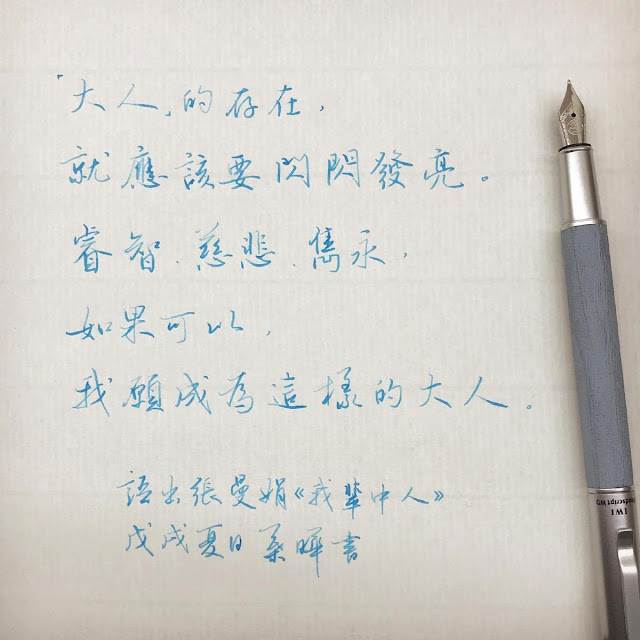 「大人」的存在，
就應該要閃閃發亮。
睿智、慈悲、雋永，
如果可以，
我願成為這樣的大人。
語出張曼娟《我輩中人》
戊戌夏日 葉曄書
IWI
Handscript